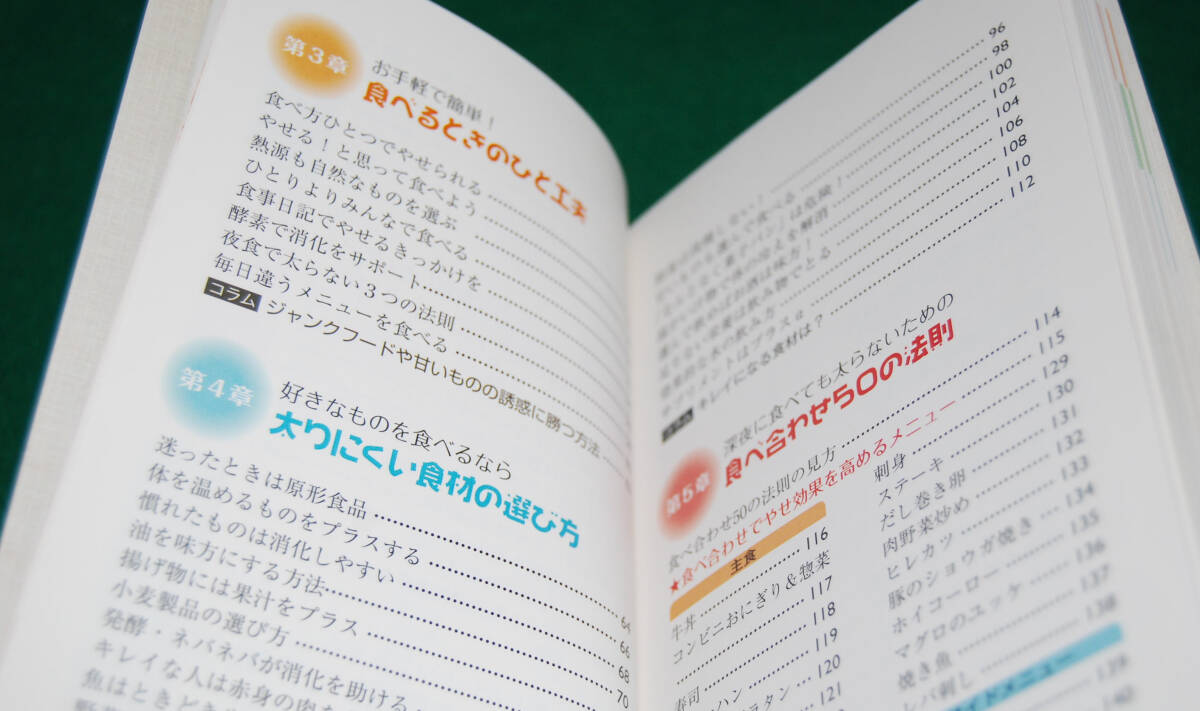 第3章
お手軽で簡単！
食べるときのひと工夫
食べ方ひとつでやせられる
やせる！と思って食べよう
熱源も自然なものを選ぶ
ひとりよりみんなで食べる
食事日記でやせるきっかけを
酵素で消化をサポート
夜食で太らない3つの法則
毎日違うメニューを食べる
コラム ジャンクフードや甘いものの誘惑に勝つ方法
第4章
好きなものを食べるなら
太りにくい食材の選び方
迷ったときは原形食品
体を温めるものをプラスする 64
慣れたものは消化しやすい 66
油を味方にする方法 68
揚げ物には果汁をプラス 70
小麦製品の選び方
発酵・ネバネバが消化を助ける
キレイな人は赤身の肉を
魚はときど
96
98
100
102
104
106
108
110
112
キレイになる食材は？
第5章
深夜に食べても太らないための
食べ合わせ50の法則
食べ合わせ50の法則の見方 114
★食べ合わせでやせ効果を高めるメニュー 115
主食
牛丼 116
コンビニおにぎり＆惣菜 117
118
寿司 119
ハン 120
タン 121
刺身 129
ステーキ 130
だし巻き卵 131
肉野菜炒め 132
ヒレカツ 133
豚のショウガ焼き 134
ホイコーロー 135
マグロのユッケ 136
焼き魚 137
レバ刺し 138
イドメニュー
139
140